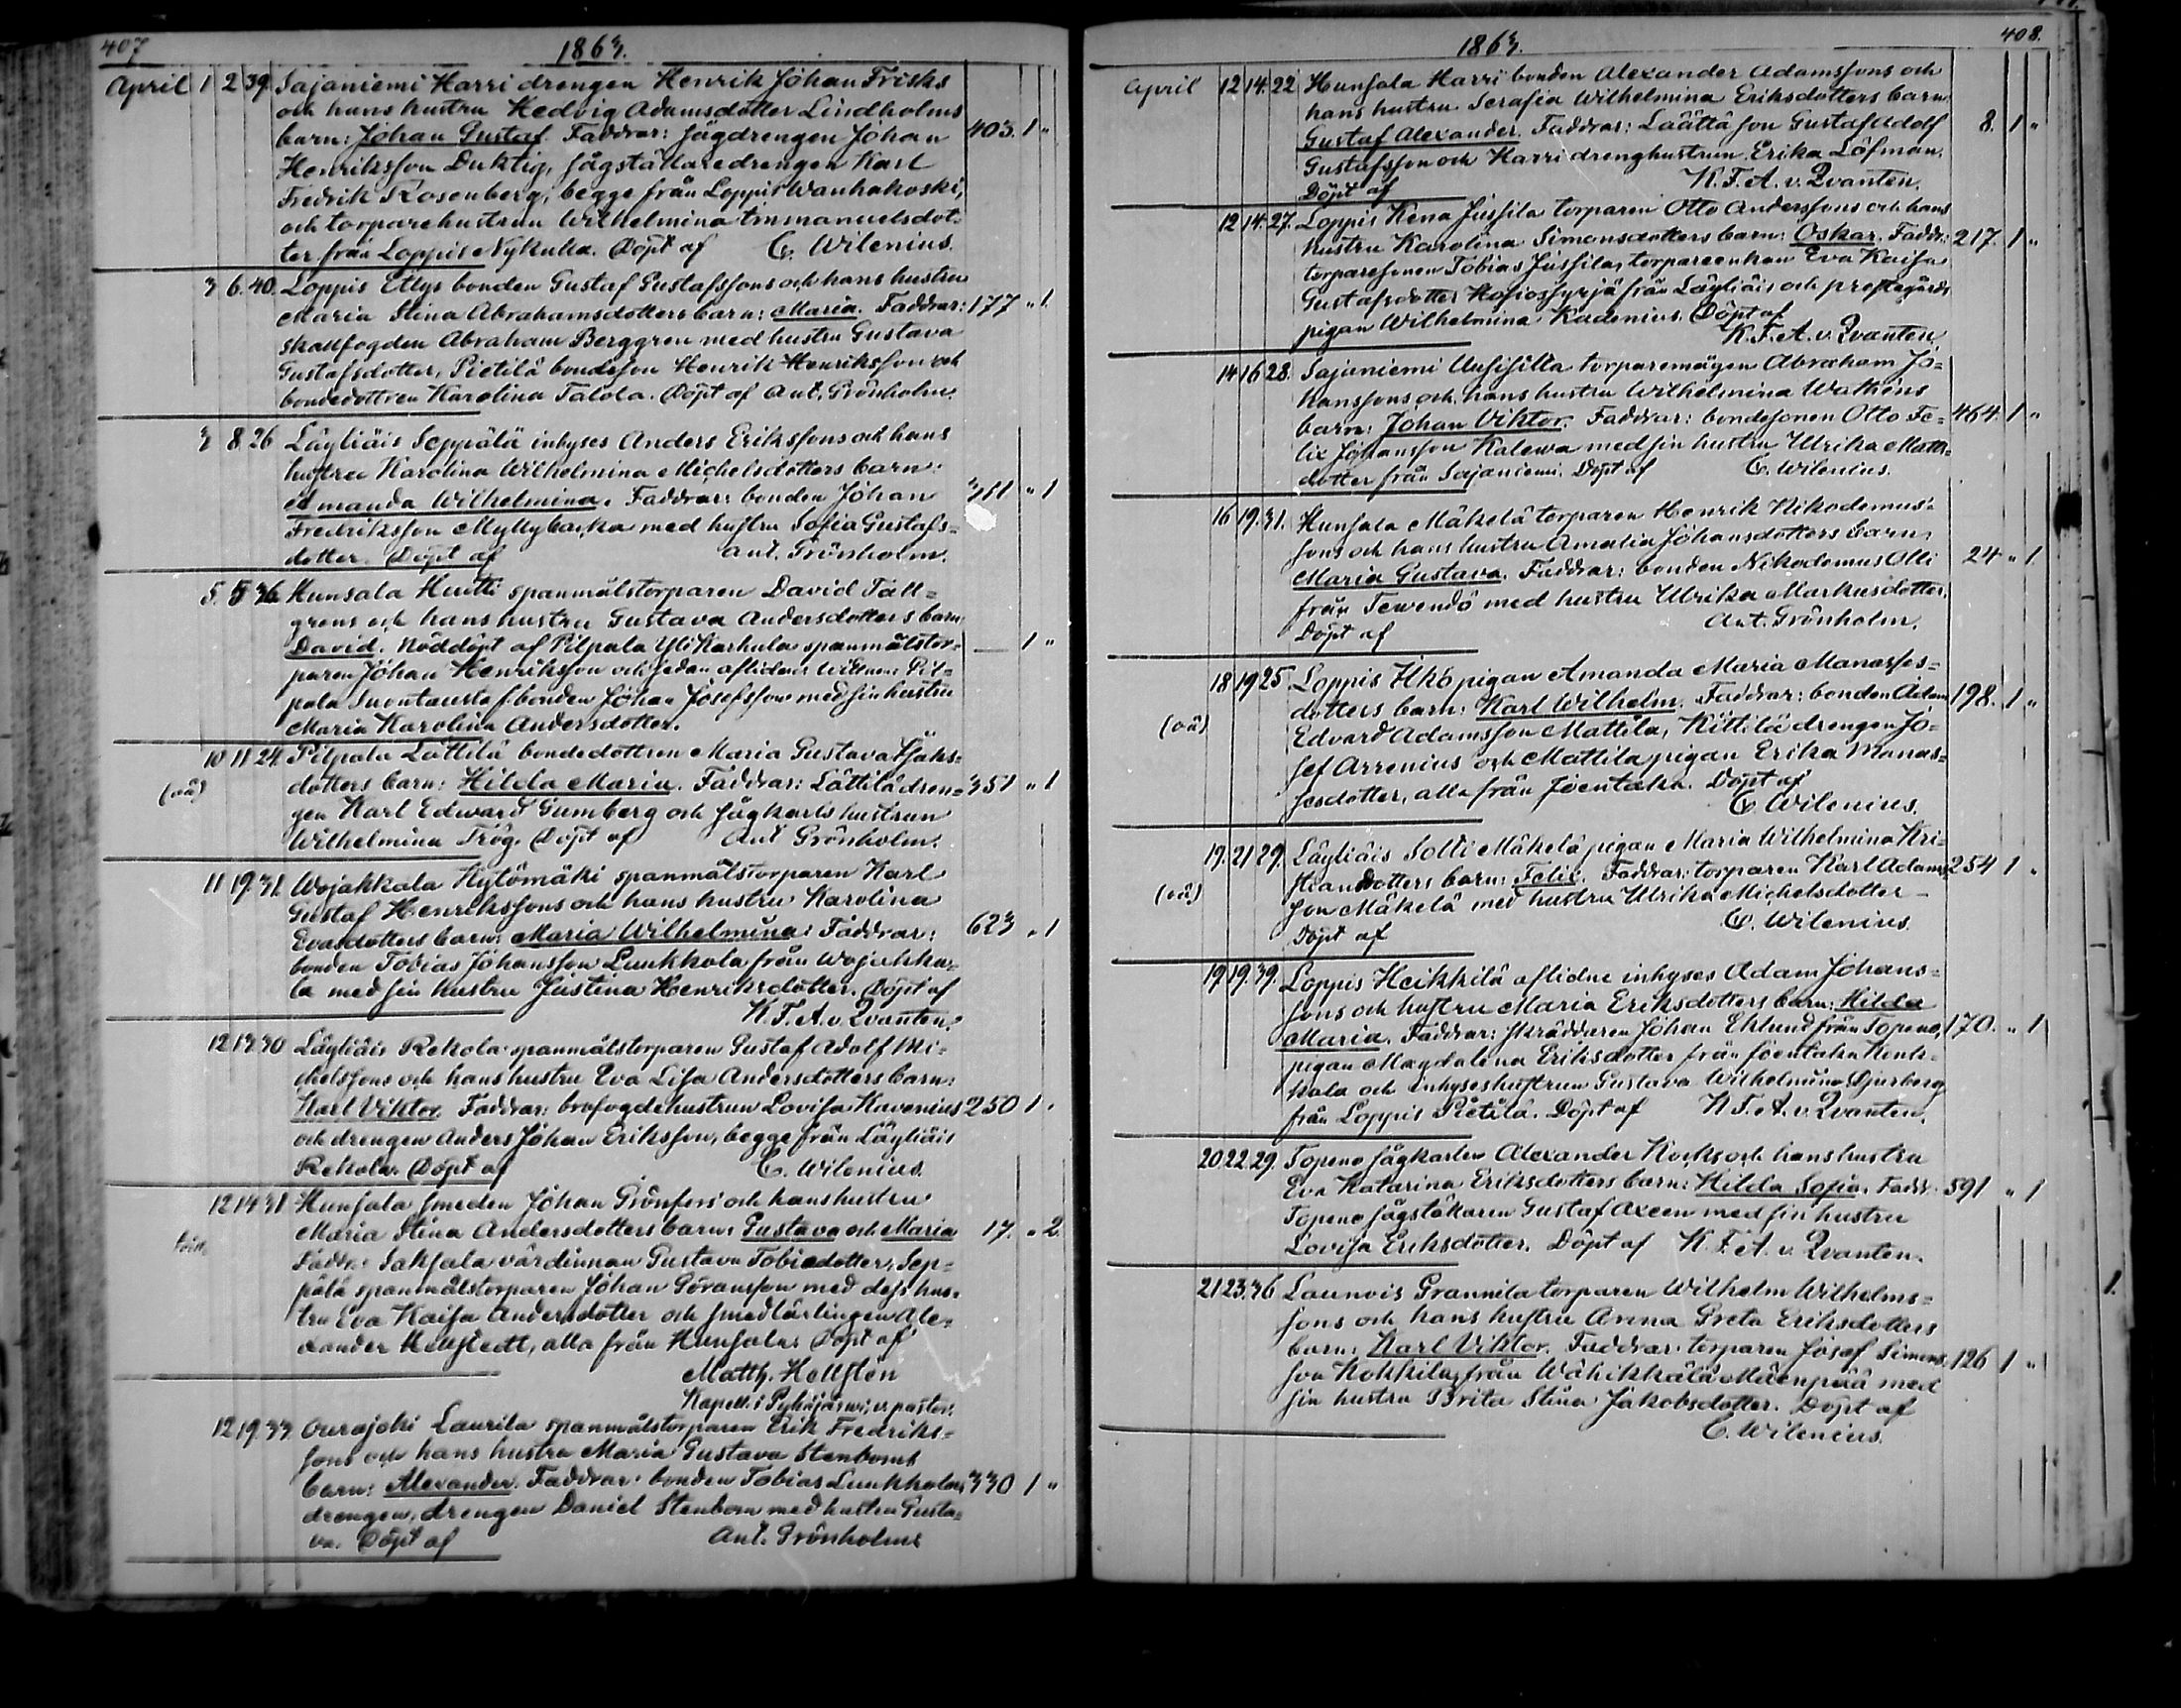 407
1863.
April 1 2 39. Sajaniemi Harri drengen Henrik Johan Frisks
och hans hustru Hedvig Adamsdotter Lindholms
barn: Johan Gustaf. Faddrar: sågdrengen Johan 403. 1 "
Henriksson Duktig, sågställaredrengen Karl
Fredrik Rosenberg, begge från Loppis Wanhakoski,
och torparehustrun Wilhelmina Immanuelsdot-
ter från Loppis Nykulla. Döpt af C. Wilenius.
3 6. 40. Loppis Ellys bonden Gustaf Gustafssons och hans hustru
Maria Stina Abrahamsdotters barn: Maria. Faddrar: 177 " 1.
skallfogden Abraham Berggren med hustru Gustava
Gustafsdotter, Pietilä bondeson Henrik Henriksson och
bondedottren Karolina Talola. Döpt af Ant. Grönholm.
3 8. 26 Läyliäis Seppälä inhyses Anders Erikssons och hans
hustru Karolina Wilhelmina Michelsdotters barn:
Amanda Wilhelmina. Faddrar: bonden Johan 281 " 1
Fredriksson Myllybacka med hustru Sofia Gustafs=
dotter. Döpt af Ant. Grönholm.
5. 5 36. Hunsala Huitti spanmålstorparen David Tall=
grens och hans hustru Gustava Andersdotters barn:
David. Nöddöpt af Pilpala Yli Karhula spanmålstor- — 1 "
paren Johan Henriksson och sedan aflidne. Wittnen: Pil-
pala Suontausta bonden Johan Josefsson med sin hustru
Maria Karolina Andersdotter.
10 11 24. Pilpala Lättilä bondedottren Maria Gustava Isaks=
(oä) dotters barn: Hilda Maria. Faddrar: Lättilä dren= 351 " 1
gen Karl Edward Gumberg och sågkarls hustrun
Wilhelmina Trög. Döpt af Ant Grönholm.
11 19. 31. Wojakkala Kytömäki spanmålstorparen Karl
Gustaf Henrikssons och hans hustru Karolina
Evasdotters barn: Maria Wilhelmina: Faddrar: 623 " 1
bonden Tobias Johansson Lunkkola från Wojakka-
la med sin hustru Justina Henriksdotter. Döpt af
K. F. A. v. Qvanten.
12 13. 30 Läyliäis Rekola spanmålstorparen Gustaf Adolf Mi-
chelssons och hans hustru Eva Lisa Andersdotters barn:
Karl Viktor. Faddrar: brofogdehustrun Lovisa Kavenius 250 1 "
och drengen Anders Johan Eriksson, begge från Läyliäis
Rekola. Döpt af C. Wilenius.
12 14 31 Hunsala smeden Johan Grönfors och hans hustru
Maria Stina Andersdotters barn: Gustava och Maria 17. " 2.
Faddr: Saksala värdinnan Gustava Tobiedotter, Sep=
pälä spanmålstorparen Johan Göransson med dess hus-
tru Eva Kaisa Andersdotter och smedlärlingen Ale-
xander Hellstedt, alla från Hunsala. Döpt af
Matth. Hellsten
Kapell. i Pyhäjärwi, v. pastor.
12 19. 33. Ourajoki Laurila spanmålstorparen Erik Fredriks-
sons och hans hustru Maria Gustava Stenboms
barn: Alexander. Faddrar: bonden Tobias Lunkkola, 330 1 "
drengen, drengen Daniel Stenbom med hustru Gusta-
va. Döpt af Ant. Grönholm
408.
1863.
April 12 14. 22 Hunsala Harri bonden Alexander Adamssons och
hans hustru Serafia Wilhelmina Eriksdotters barn:
Gustaf Alexander. Faddrar: Laättä son Gustaf Adolf 8. 1 "
Gustafsson och Harri drenghustrun Erika Löfman.
Döpt af K. F. A. v. Qvanten.
12 14. 27. Loppis Kena Jussila torparen Otto Anderssons och hans
hustru Karolina Simonsdotters barn: Oskar. Faddr: 217. 1 "
torparesonen Tobias Jussila, torpareenkan Eva Kaisa
Gustafsdotter från Läyliäis och prestegårds
pigan Wilhelmina Kadenius. Döpt af
K. F. A. v. Qvanten
14 16 28. Sajaniemi Uusisilta torparemågen Abraham Jo=
hanssons och hans hustru Wilhelmina Wathéns
barn: Johan Viktor. Faddrar: bondesonen Otto Fe= 464. 1 "
lix Johansson Kalewa med sin hustru Ulrika Matts-
dotter från Sajaniemi. Döpt af C. Wilenius.
16 19. 31. Hunsala Mäkelä torparen Henrik Nikodemus-
sons och hans hustru Amalia Johansdotters barn:
Maria Gustava. Faddrar: bonden Nikodemus Olli 24 " 1.
från Tewendö med hustru Ulrika Markusdotter.
Döpt af Ant. Grönholm.
18 19 25. Loppis Ilko pigan Amanda Maria Manasses=
(oä) dotters barn: Karl Wilhelm. Faddrar: bonden Adam 198. 1 "
Edvard Adamsson Mattila, Kittilä drengen Jo-
sef Arrenius och Mattila pigan Erika Manas=
sesdotter, alla från Joentaka. Döpt af
C. Wilenius.
19. 21 29. Läyliäis Solli Mäkelä pigan Maria Wilhelmina Kri-
(oä) stiansdotters barn: Felix. Faddrar: torparen Karl Adams- 254 1 "
son Mäkelä med hustru Ulrika Michelsdotter -
Döpt af C. Wilenius.
19 19. 39. Loppis Heikkilä aflidne inhyses Adam Johans=
sons och hustru Maria Eriksdotters barn: Hilda
Maria. Faddrar: skräddaren Johan Eklund från Topeno, 170. " 1
pigan Magdalena Eriksdotter från Joentaka Kenk-
kala och inhyseshustrun Gustava Wilhelmina Djurberg
från Loppis Pietilä. Döpt af K. F. A. v. Qvanten.
20 22. 29. Topeno sågkarlen Alexander Kocks och hans hustru
Eva Katarina Eriksdotters barn: Hilda Sofia. Faddr. 591 " 1
Topeno sågställaren Gustaf Axeen med sin hustru
Lovisa Eriksdotter. Döpt af K. F. A. v. Qvanten.
21 23. 36 Launois Prannila torparen Wilhelm Wilhelms=
sons och hans hustru Anna Greta Eriksdotters
barn: Karl Viktor. Faddrar: torparen Josef Simons- 126 1 "
son Kokkila, från Wähikkälä Mäenpää med
sin hustru Brita Stina Jakobsdotter. Döpt af
C. Wilenius.
1.